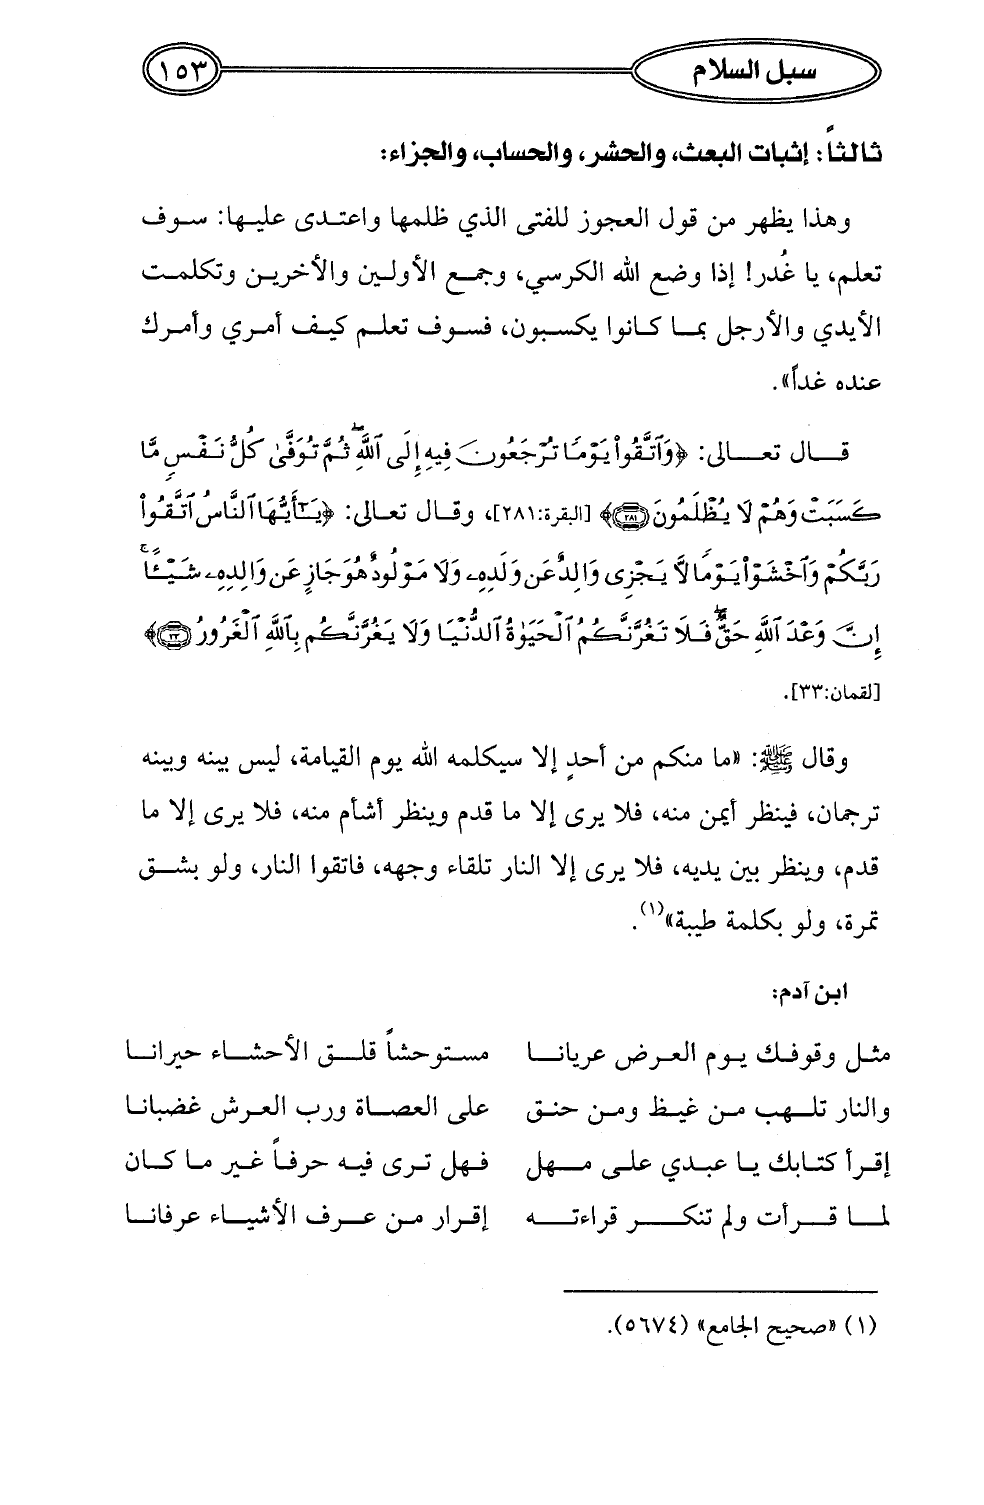 سبل السلام ١٥٣
ثالثاً: إثبات البعث، والحشر، والحساب، والجزاء:
وهذا يظهر من قول العجوز للفتى الذي ظلمها واعتدى عليها: سوف
تعلم، يا غُدر! إذا وضع الله الكرسي، وجمع الأولين والأخرين وتكلمت
الأيدي والأرجل بما كانوا يكسبون، فسوف تعلم كيف أمري وأمرك
عنده غداً».
قال تعالى: ﴿وَٱتَّقُوا۟ يَوْمًا تُرْجَعُونَ فِيهِ إِلَى ٱللَّهِ ۖ ثُمَّ تُوَفَّىٰ كُلُّ نَفْسٍ مَّا
كَسَبَتْ وَهُمْ لَا يُظْلَمُونَ ٢٨١﴾ [البقرة:٢٨١]، وقال تعالى: ﴿يَـٰٓأَيُّهَا ٱلنَّاسُ ٱتَّقُوا۟
رَبَّكُمْ وَٱخْشَوْا۟ يَوْمًا لَّا يَجْزِى وَالِدٌ عَن وَلَدِهِۦ وَلَا مَوْلُودٌ هُوَ جَازٍ عَن وَالِدِهِۦ شَيْـًٔا ۚ
إِنَّ وَعْدَ ٱللَّهِ حَقٌّ ۖ فَلَا تَغُرَّنَّكُمُ ٱلْحَيَوٰةُ ٱلدُّنْيَا وَلَا يَغُرَّنَّكُم بِٱللَّهِ ٱلْغَرُورُ ٣٣﴾
[لقمان:٣٣].
وقال ﷺ: «ما منكم من أحدٍ إلا سيكلمه الله يوم القيامة، ليس بينه وبينه
ترجمان، فينظر أيمن منه، فلا يرى إلا ما قدم وينظر أشأم منه، فلا يرى إلا ما
قدم، وينظر بين يديه، فلا يرى إلا النار تلقاء وجهه، فاتقوا النار، ولو بشق
تمرة، ولو بكلمة طيبة»(١).
ابن آدم:
مثل وقوفك يوم العرض عريانا مستوحشاً قلق الأحشاء حيرانا
والنار تلهب من غيظ ومن حنق على العصاة ورب العرش غضبانا
إقرأ كتابك يا عبدي على مهل فهل ترى فيه حرفاً غير ما كان
لما قرأت ولم تنكر قراءته إقرار من عرف الأشياء عرفانا
(١) «صحيح الجامع» (٥٦٧٤).